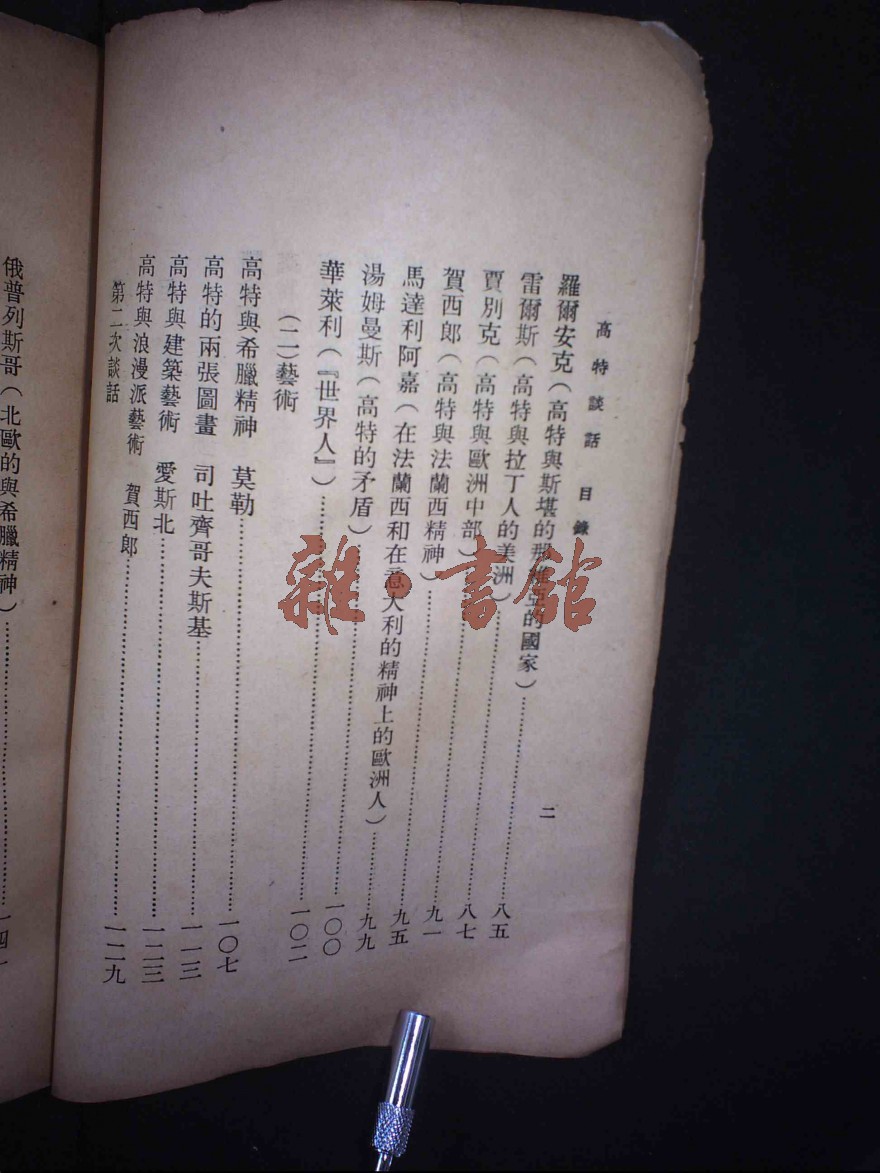 高特談話 目錄 二
羅爾安克(高特與斯堪的那維亞的國家)……八五
雷爾斯(高特與拉丁人的美洲)……八七
賈別克(高特與歐洲中部)……九一
賀西郎(高特與法蘭西精神)……九五
馬達利阿嘉(在法蘭西和在意大利的精神上的歐洲人)……九九
湯姆曼斯(高特的矛盾)……一〇〇
華萊利(『世界人』)……一〇二
(二)藝術
高特與希臘精神 莫勒……一〇七
高特的兩張圖畫 司吐齊哥夫斯基……一一三
高特與建築藝術 愛斯北……一二三
高特與浪漫派藝術 賀西郎……一二九
第二次談話
俄普列斯哥(北歐的與希臘精神)……一四
雜·書館